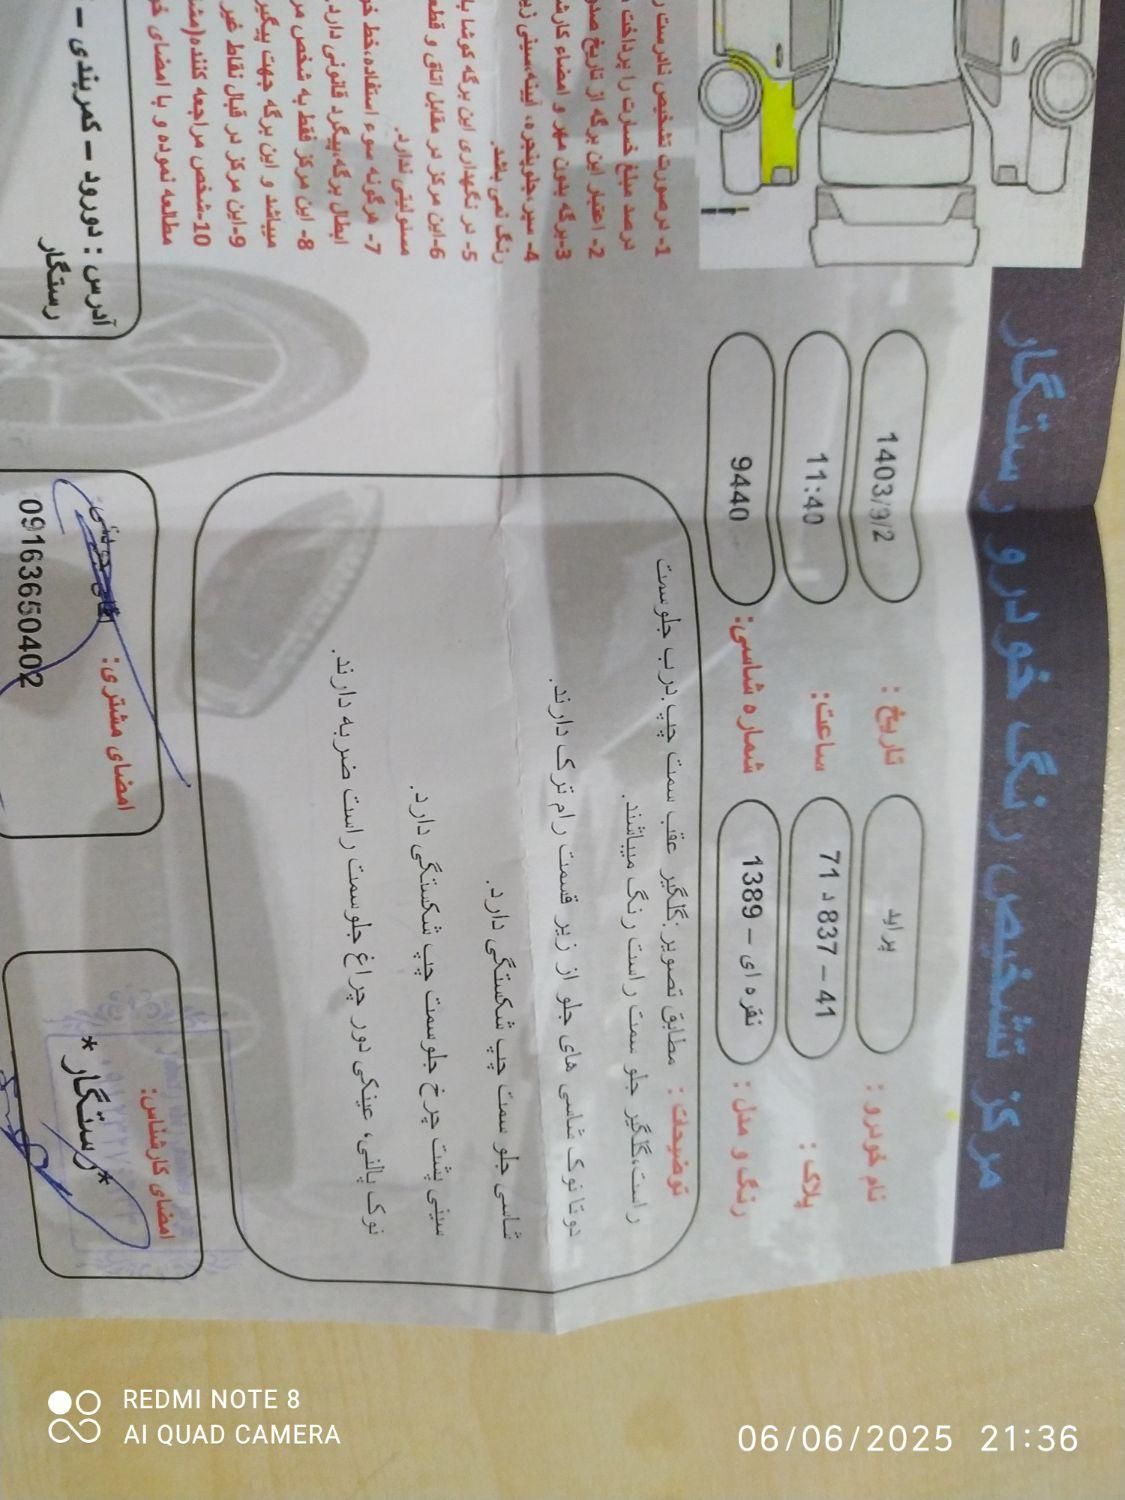 مرکز تشخیص رنگ خودرو رستگار
نام خودرو : پراید
تاریخ : 1403/9/2
پلاک : 41 – 837 د 71
ساعت: 11:40
رنگ و مدل : نقره ای – 1389
شماره شاسی: 9440
توضیحات : مطابق تصویر :گلگیر عقب سمت چپ.درب جلوسمت
راست،گلگیر جلو سمت راست رنگ میباشند.
دوتا نوک شاسی های جلو از زیر قسمت رام ترک دارند.
شاسی جلو سمت چپ شکستگی دارد.
سینی پشت چرخ جلوسمت چپ شکستگی دارد.
نوک پالنی، عینکی دور چراغ جلوسمت راست ضربه دارند.
1- درصورت تشخیص نادرست
درصد مبلغ خسارت را پرداخت
2- اعتبار این برگه از تاریخ
3-برگه بدون مهر و امضاء
4- سپر،جلوپنجره، آینه،سینی
رنگ نمی باشد.
5- در نگهداری این برگه کوشا
6-این مرکز در مقابل اتاق و
مسئولیتی ندارد.
7- هرگونه سوء استفاده،خط
ابطال برگه،پیگرد قانونی دارد.
8- این مرکز فقط به شخص
میباشد و این برگه جهت
9-این مرکز در قبال نقاط غیر
10-شخص مراجعه کننده
مطالعه نموده و با امضای
آدرس : دورود – کمربندی –
رستگار
امضای کارشناس:
*رستگار*
امضای مشتری:
09163650402
REDMI NOTE 8
AI QUAD CAMERA
06/06/2025 21:36